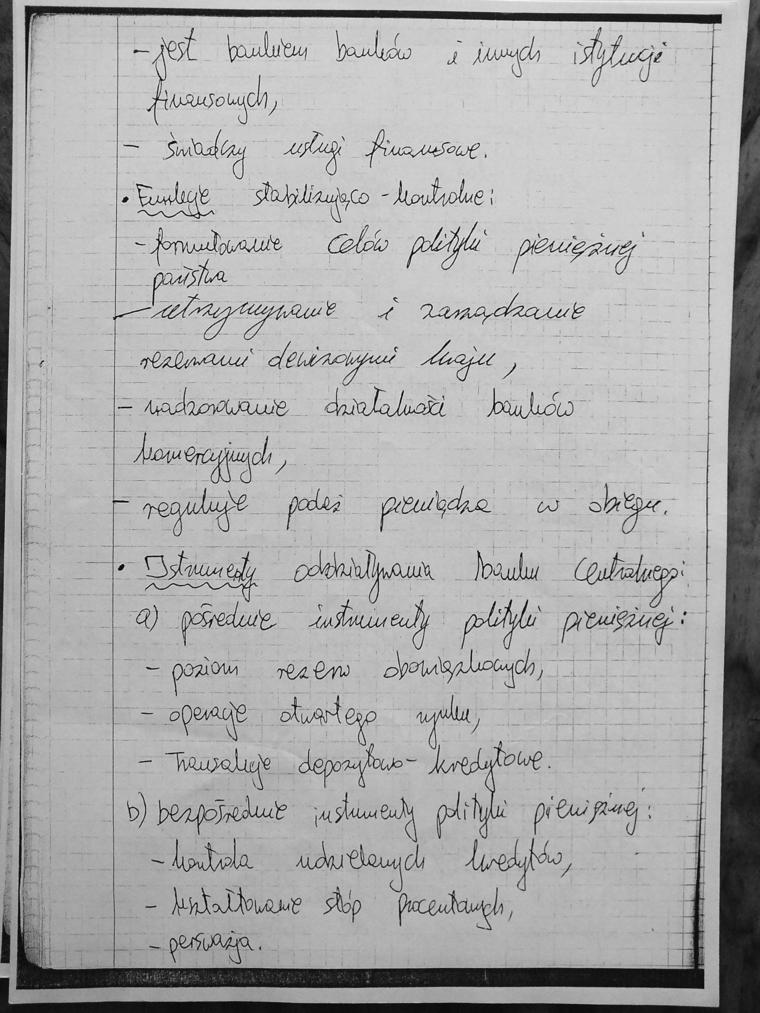 - jest bankiem banków i innych istytucji
finansowych,
- świadczy usługi finansowe.
• Funkcje stabilizująco-kontrolne:
- formułowanie celów polityki pieniężnej
państwa
- utrzymywanie i zarządzanie
rezerwami dewizowymi kraju,
- nadzorowanie działalności banków
komercyjnych,
- reguluje podaż pieniądza w obiegu.
• Istrumenty oddziaływania banku centralnego:
a) pośrednie instrumenty polityki pieniężnej:
- poziom rezerw obowiązkowych,
- operacje otwartego rynku,
- Transakcje depozytowo-kredytowe.
b) bezpośrednie instrumenty polityki pieniężnej:
- kontrola udzielanych kredytów,
- kształtowanie stóp procentowych,
- perswazja.